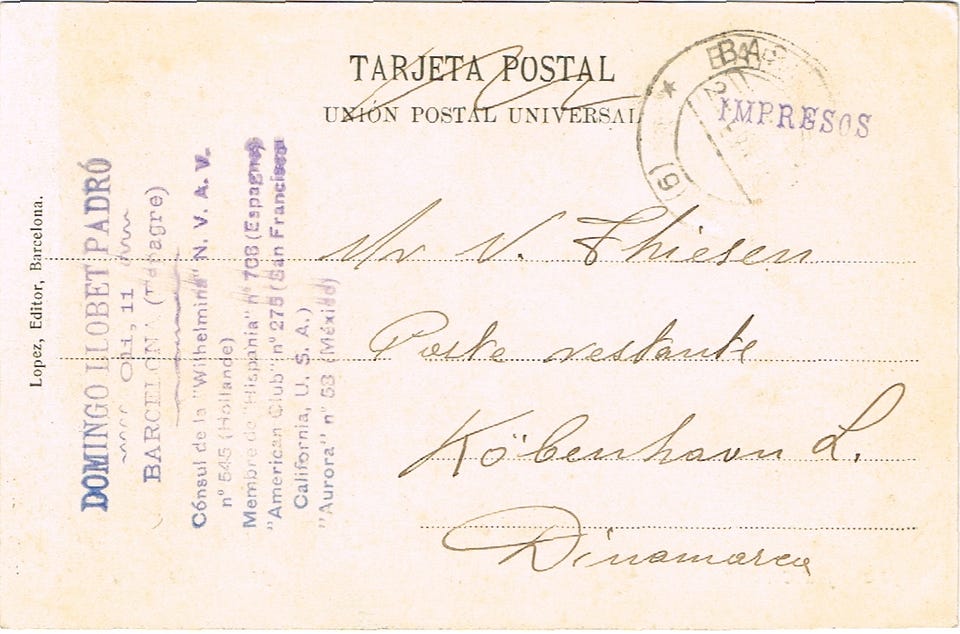 TARJETA POSTAL
UNIÓN POSTAL UNIVERSAL
IMPRESOS
Mr V. Thiesen
Poste restante
Köbenhavn L.
Dinamarca
Lopez, Editor, Barcelona.
DOMINGO LLOBET PADRÓ
11
BARCELONA
Cónsul de la "Wilhelmina" N. V. A. V.
nº 545 (Hollande)
Membre de "Hispania" nº 708 (Espagne)
"American Club" nº 275 (San Francisco
California, U. S. A.)
"Aurora" nº 53 (México)